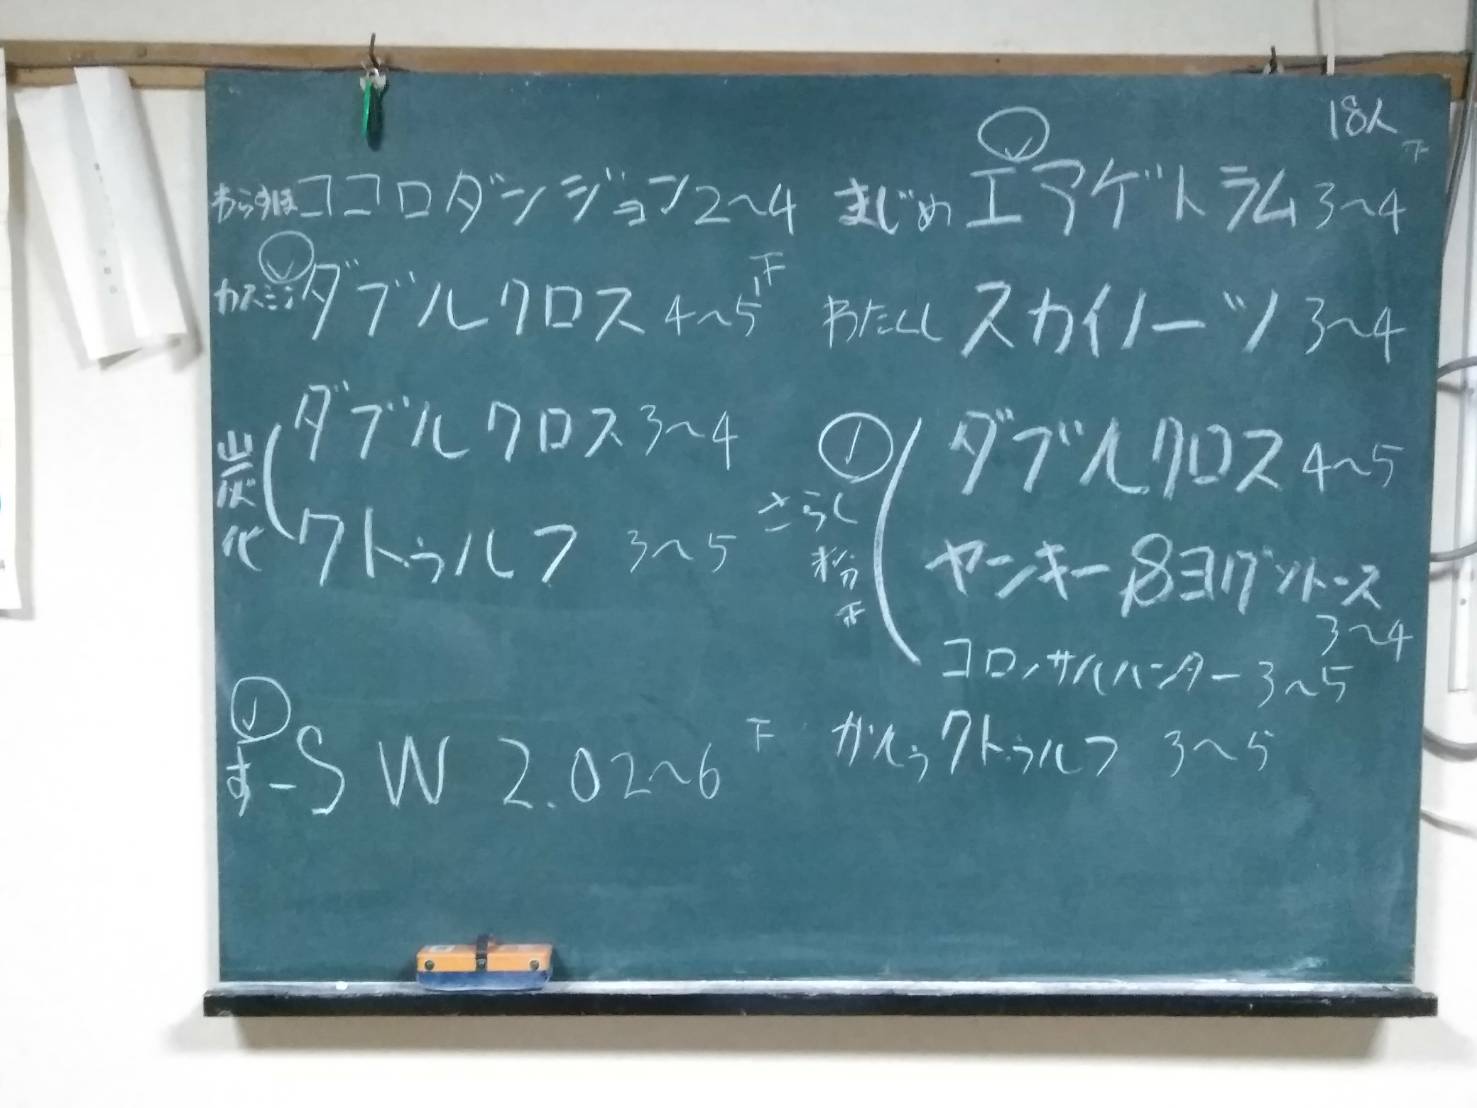 18人
下
わらすは ココロダンジョン 2〜4
カスミン ダブルクロス 4〜5 正
炭化 ダブルクロス 3〜4
クトゥルフ 3〜5
すー SW 2.0 2〜6 下
まじめ エアゲトラム 3〜4
わたくし スカイノーツ 3〜4
さらし粉 ダブルクロス 4〜5
正 ヤンキー&ヨグソトース
3〜4
コロッサルハンター 3〜5
がんぅ クトゥルフ 3〜5